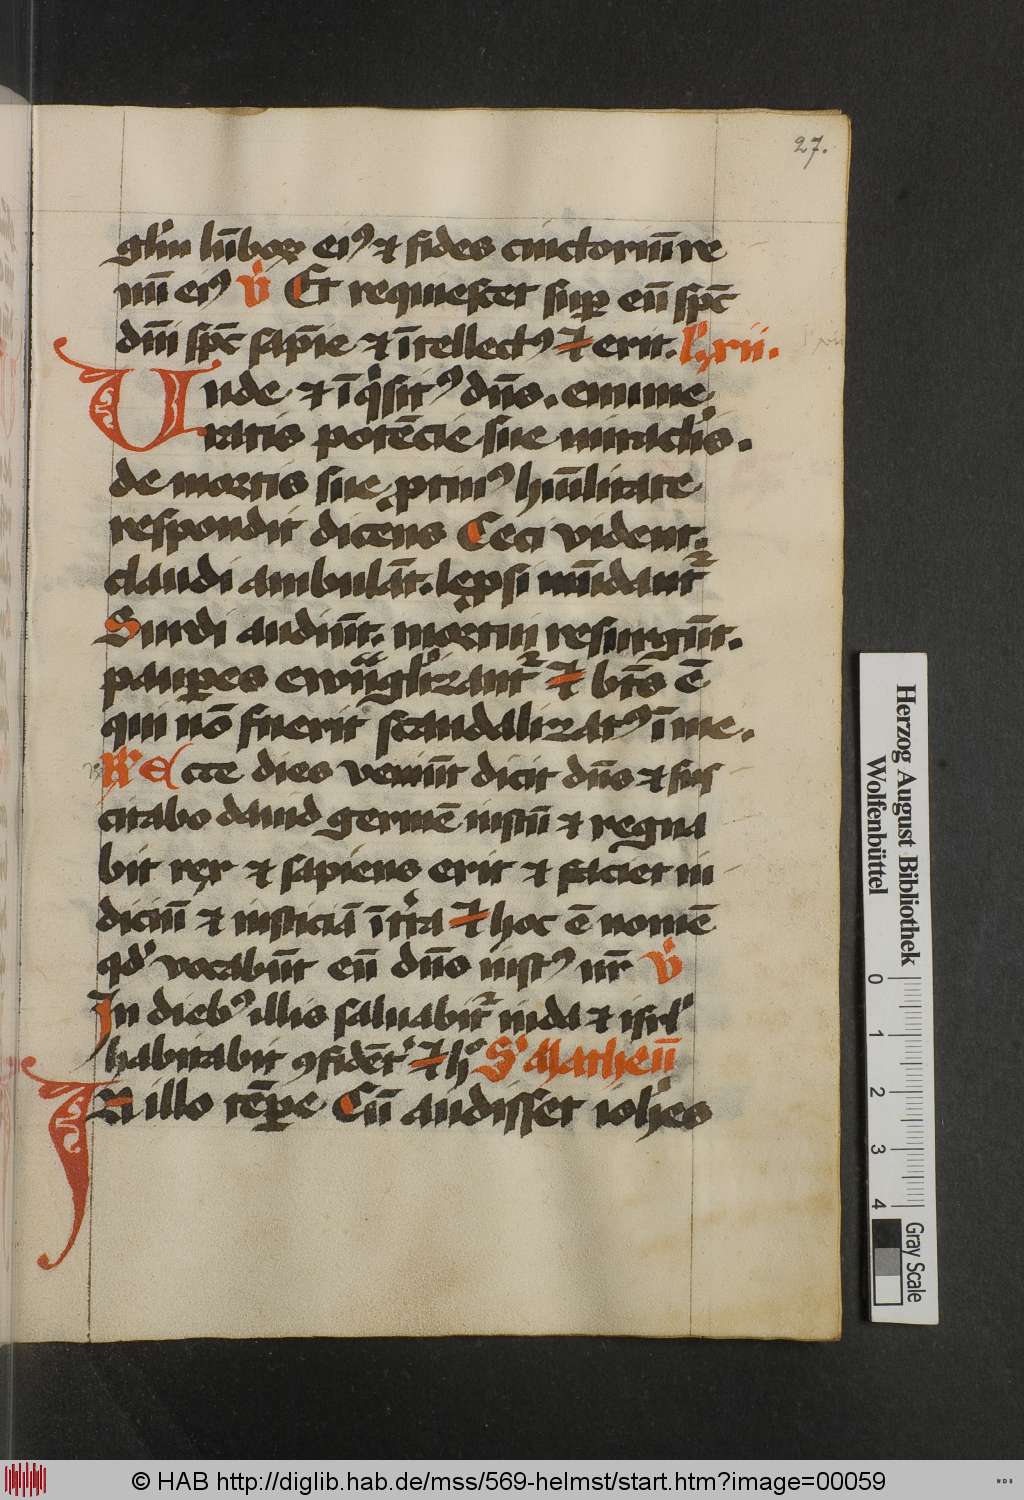 27.
gl'm lūboꝝ ei9 ⁊ fides cinctoriū re
nū ei9 V' Et requiescet sup eū spc̄
dn̄i spc̄ sapīe ⁊ ītellect9 ⁊ erit. l' xii.
Unde ⁊ īq'sit9 dn̄s. enume
ratis potēcie sue miraclis.
de mortis sue ptin9 hūilitate
respondit dicens Ceci vident.
claudi ambulāt. lepsi mūdant'
Surdi audiūt. mortui resurgūt.
paupes ewāgl'izant' ⁊ bt̄s ē
qui nō fuerit scandalizat9 ī me.
R' Ecce dies veniūt dicit dn̄s ⁊ sus
citabo dauid germē iustū ⁊ regna
bit rex ⁊ sapiens erit ⁊ faciet iu
diciū ⁊ iusticiā ī t'ra ⁊ hoc ē nomē
qd' vocabūt eū dn̄s iust9 nr̄ V'
In dieb9 illis saluabit' iuda ⁊ isrl'
habitabit ꝯfidēt' ⁊ h° S' Matheū
In illo tēpe Cū audisset ioh'es
Herzog August Bibliothek
Wolfenbüttel
0 1 2 3 4
Gray Scale
© HAB http://diglib.hab.de/mss/569-helmst/start.htm?image=00059